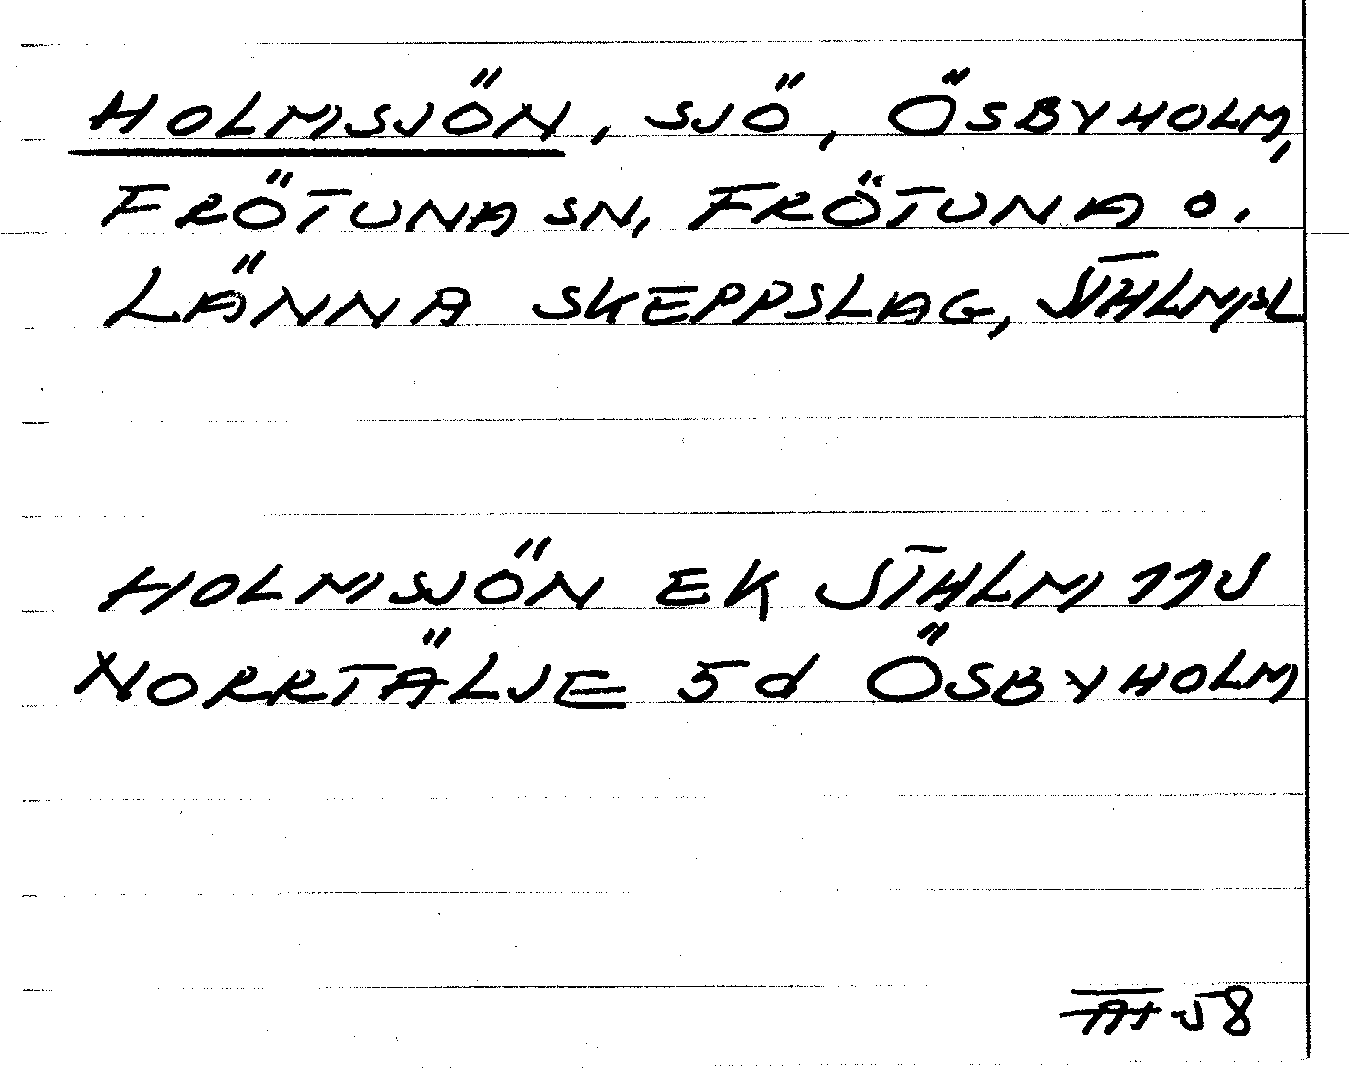 HOLMSJÖN, SJÖ, ÖSBYHOLM,
FRÖTUNA SN, FRÖTUNA O.
LÄNNA SKEPPSLAG, STHLMSL
HOLMSJÖN EK STHLM 11J
NORRTÄLJE 5d ÖSBYHOLM
58